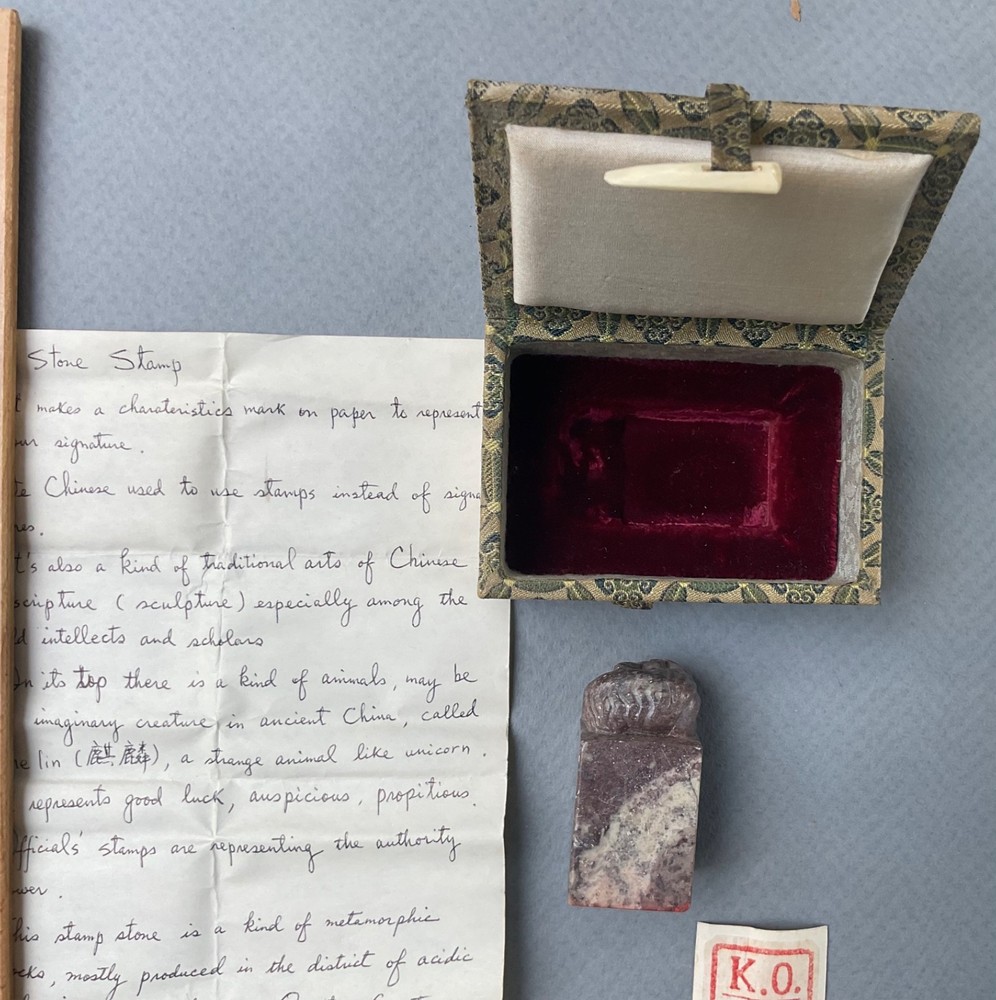 Stone Stamp
makes a charateristics mark on paper to represent
signature.
Chinese used to use stamps instead of signa
res.
t's also a kind of traditional arts of Chinese
scripture (sculpture) especially among the
d intellects and scholars
In its top there is a kind of animals, may be
imaginary creature in ancient China, called
lin (麒麟), a strange animal like unicorn.
represents good luck, auspicious, propitious.
fficial's stamps are representing the authority
wer.
his stamp stone is a kind of metamorphic
cks, mostly produced in the district of acidic
K.O.